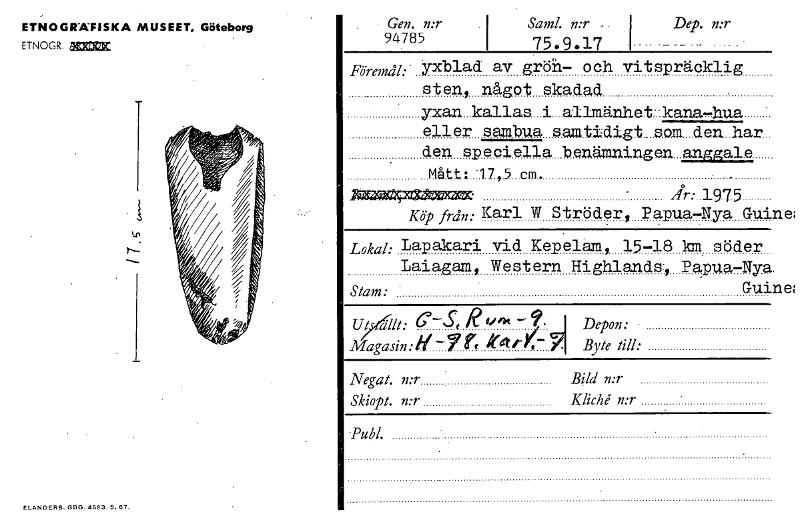 ETNOGRAFISKA MUSEET, Göteborg
ETNOGR.
17.5 cm
ELANDERS. GBG. 4683. S. 67.
Gen. n:r Saml. n:r Dep. n:r
94785 75.9.17
Föremål: yxblad av grön- och vitspräcklig
sten, något skadad
yxan kallas i allmänhet kana-hua
eller sambua samtidigt som den har
den speciella benämningen anggale
Mått: 17,5 cm.
År: 1975
Köp från: Karl W Ströder, Papua-Nya Guinea
Lokal: Lapakari vid Kepelam, 15-18 km söder
Laiagam, Western Highlands, Papua-Nya
Guinea
Stam:
Utställt: G-S. Rum-9. Depon:
Magasin: H-78. Kart.-7. Byte till:
Negat. n:r Bild n:r
Skiopt. n:r Kliché n:r
Publ.